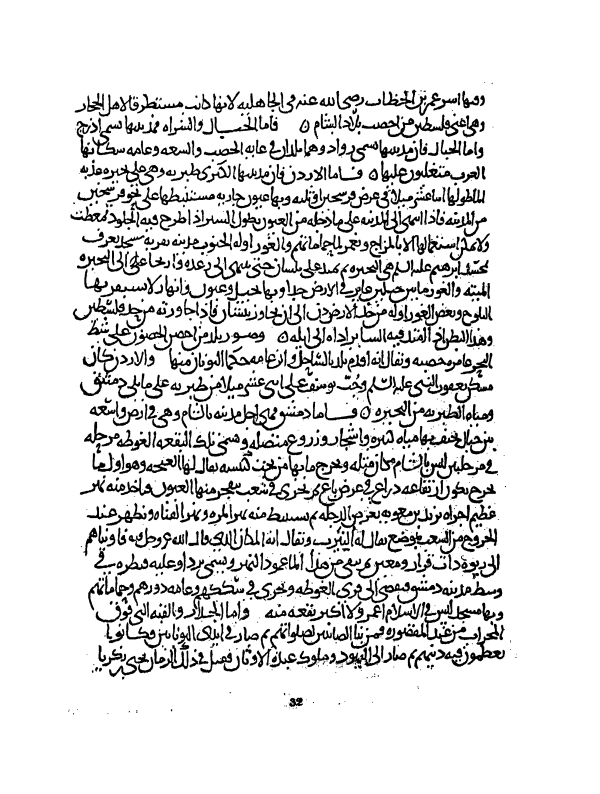 وبها ايسر عمر بن الخطاب رضى الله عنه فى الجاهليه لانها كانت مستطرقا لاهل الحجاز
وهى اعنى فلسطين من اخصب بلاد الشام ٥ فاما الجبال والشراه فمدينتها تسمى اذرح
واما الجبال فان مدينتها تسمى رواد وهما بلدان فى غايه الخصب والسعه وعامه سكانها
العرب متغلبون عليها ٥ فاما الاردن فان مدينتها الكبرى طبريه وهى على بحيره عذبه
الما طولها اثنا عشر ميلا فى عرض فرسخين او ثلثه وبها عيون جاريه مستنبطها على نحو فرسخين
من المدينه فاذا انتهى الى المدينه على ما دخله من الفتور بطول السير اذا طرح فيه الجلود تمعطت
ولا يمكن استعمالها الا بالمزاج ويعم هذا الما حماماتهم والغور اوله
ثم البحيره ثم يمتد على بيسان حتى ينتهى الى زغر واريحا على البحيره
الميته والغور ما بين جبلين غاير فى الارض جدا وبها نخيل وعيون وانهار لا تستقر بها
الثلوج وبعض الغور اوله من حد الاردن الى ان تجاوز بيسان فاذا جاوزته من حد فلسطين
وهذا البطن اذا امتد فيه الساير اداه الى ايله ٥ وصور بلد من احصن الحصون على شط
البحر عامره خصبه ويقال انه اقدم بلد بالساحل وان عامه حكما اليونان منها والاردن كان
مسكن يعقوب النبى عليه السلم وجب يوسف على اثنى عشر ميلا من طبريه على ما يلى دمشق
ومياه الطبريه من البحيره ٥ فاما دمشق فهى اجل مدينه بالشام وهى فى ارض واسعه
بين جبال تحتف بها مياه كثيره واشجار وزروع متصله وتسمى تلك البقعه الغوطه مرحله
فى مرحلتين ليس بالشام مكان مثله ومخرج مايها من تحت كنيسه يقال لها الفيجه وهو اول ما
يخرج يكون ارتفاعه ذراع فى عرض باع ثم يجرى فى شعب يتفجر منها العيون فياخذ منه نهر
عظيم اجراه يزيد بن معويه يعرض الدجله ثم يستنبط منه نهر المزه ونهر القناه ويظهر عند
الخروج من الشعب بموضع يقال له النيرب ويقال انه المكان الذى قال الله عز وجل فيه فاويناهم
الى ربوه ذات قرار ومعين ثم يبقى من هذا الما عمود النهر ويسمى بردا وعليه قنطره فى
وسط مدينه دمشق فيفضى الى قرى الغوطه ويجرى فى سككهم وعامه دورهم وحماماتهم
وبها مسجد ليس فى الاسلام اعمر ولا اكبر بقعه منه واما الجدار والقبه التى فوق
المحراب من عند المقصوره فمن بنا الصابين لصلواتهم ثم صار فى ايدى اليونانيين فكانوا
يعظمون فيه دينهم ثم صار الى اليهود وملوك عبده الاوثان فقتل فى ذلك الزمان يحيى بن زكريا
32